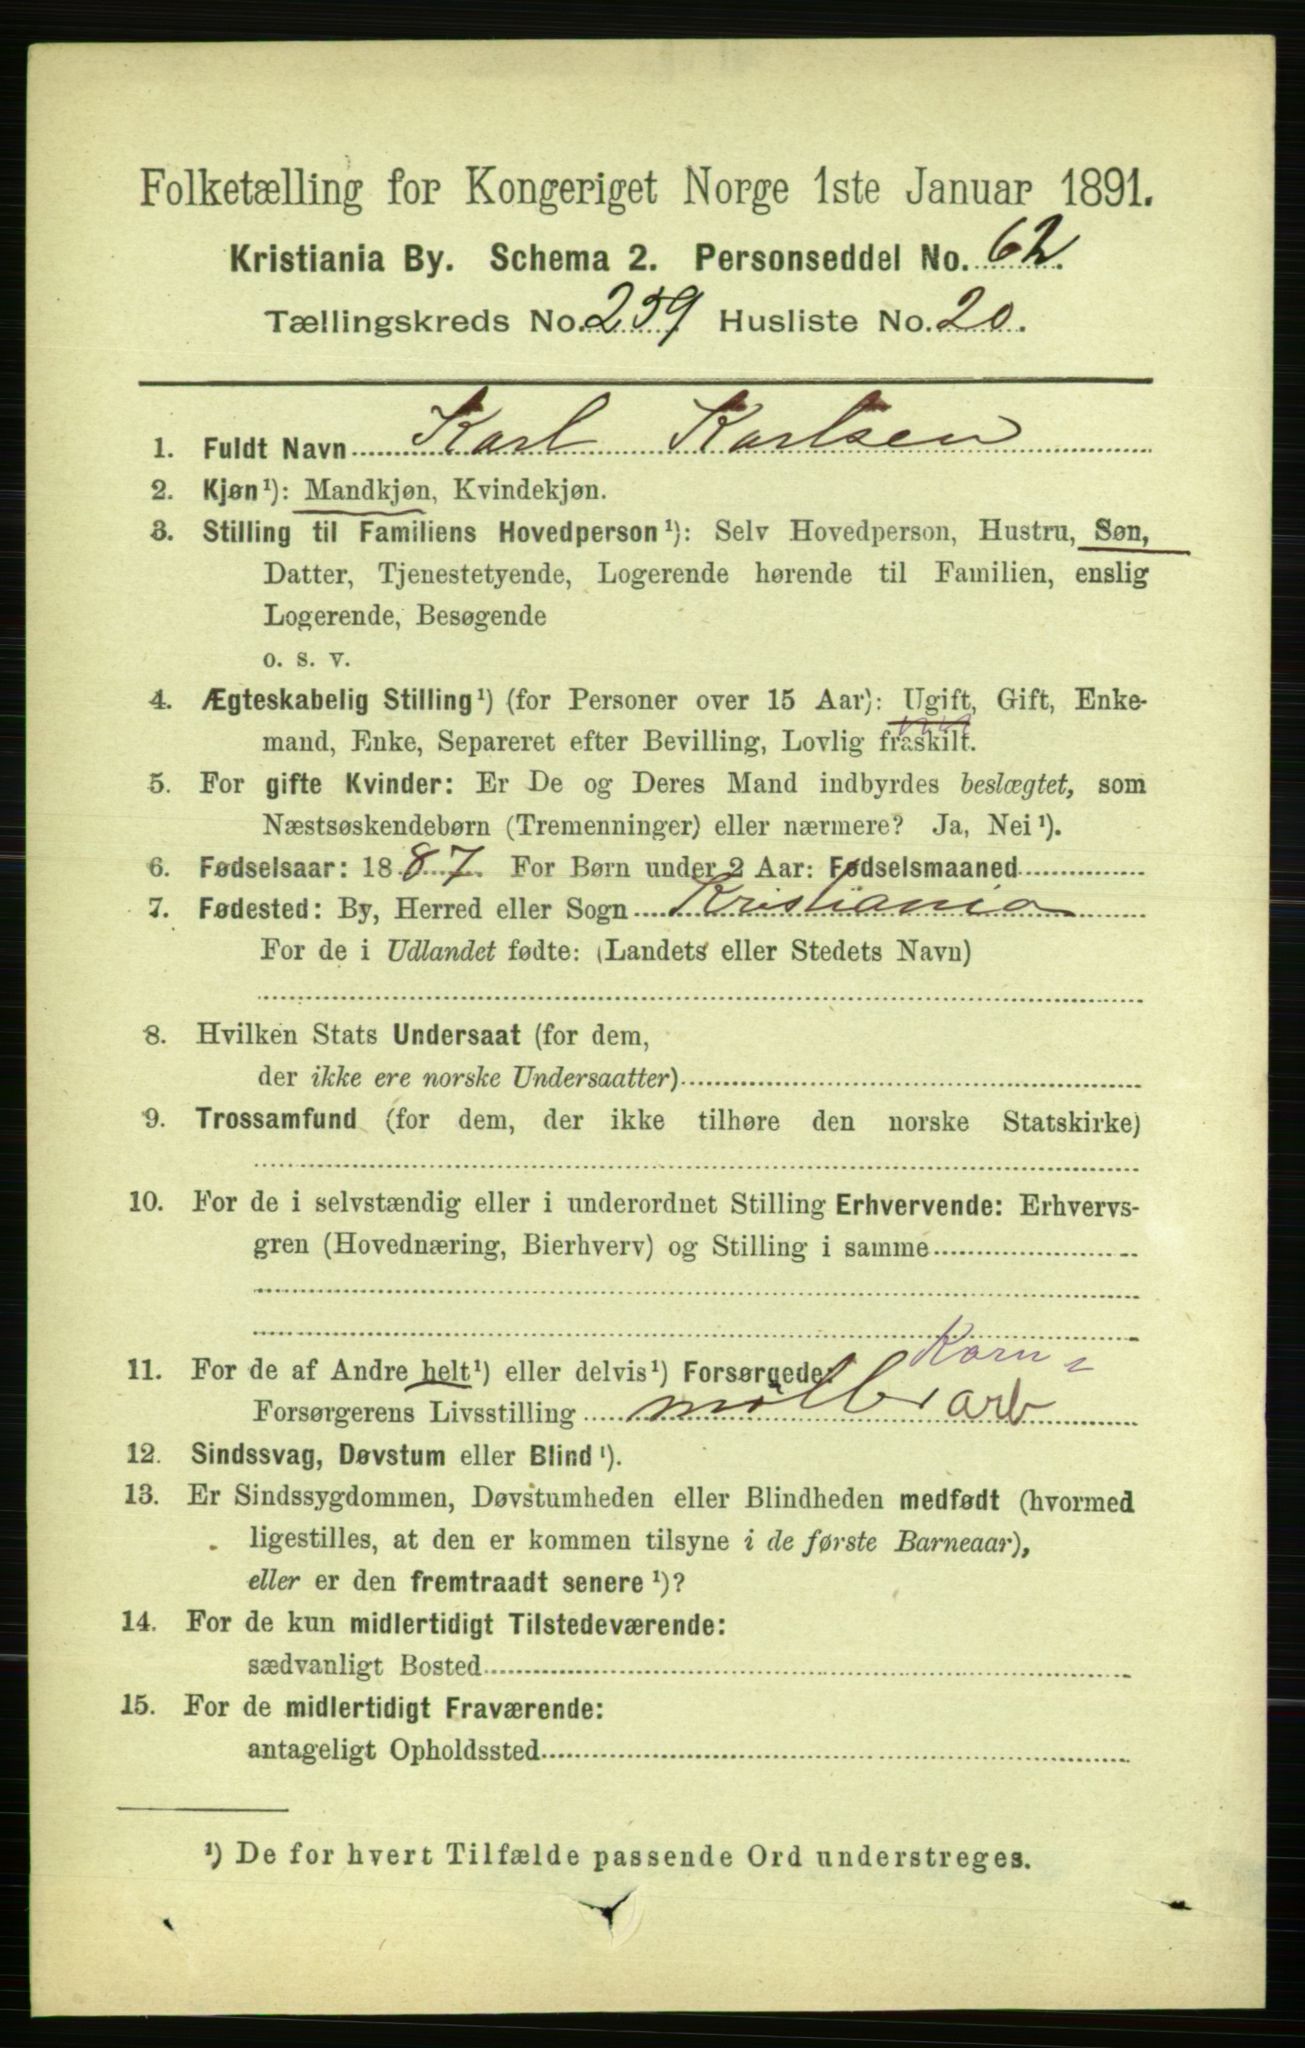 Folketælling for Kongeriget Norge 1ste Januar 1891.
Kristiania By. Schema 2. Personseddel No. 62.
Tællingskreds No. 259 Husliste No. 20.
1. Fuldt Navn Karl Karlsen
2. Kjøn¹): Mandkjøn, Kvindekjøn.
3. Stilling til Familiens Hovedperson¹): Selv Hovedperson, Hustru, Søn,
Datter, Tjenestetyende, Logerende hørende til Familien, enslig
Logerende, Besøgende
o. s. v.
4. Ægteskabelig Stilling¹) (for Personer over 15 Aar): Ugift, Gift, Enke-
mand, Enke, Separeret efter Bevilling, Lovlig fraskilt.
5. For gifte Kvinder: Er De og Deres Mand indbyrdes beslægtet, som
Næstsøskendebørn (Tremenninger) eller nærmere? Ja, Nei¹).
6. Fødselsaar: 1887. For Børn under 2 Aar: Fødselsmaaned
7. Fødested: By, Herred eller Sogn Kristiania
For de i Udlandet fødte: (Landets eller Stedets Navn)
8. Hvilken Stats Undersaat (for dem,
der ikke ere norske Undersaatter)
9. Trossamfund (for dem, der ikke tilhøre den norske Statskirke)
10. For de i selvstændig eller i underordnet Stilling Erhvervende: Erhvervs-
gren (Hovednæring, Bierhverv) og Stilling i samme
Korn-
11. For de af Andre helt¹) eller delvis¹) Forsørgede:
Forsørgerens Livsstilling arb
12. Sindssvag, Døvstum eller Blind¹).
13. Er Sindssygdommen, Døvstumheden eller Blindheden medfødt (hvormed
ligestilles, at den er kommen tilsyne i de første Barneaar),
eller er den fremtraadt senere¹)?
14. For de kun midlertidigt Tilstedeværende:
sædvanligt Bosted
15. For de midlertidigt Fraværende:
antageligt Opholdssted
¹) De for hvert Tilfælde passende Ord understreges.